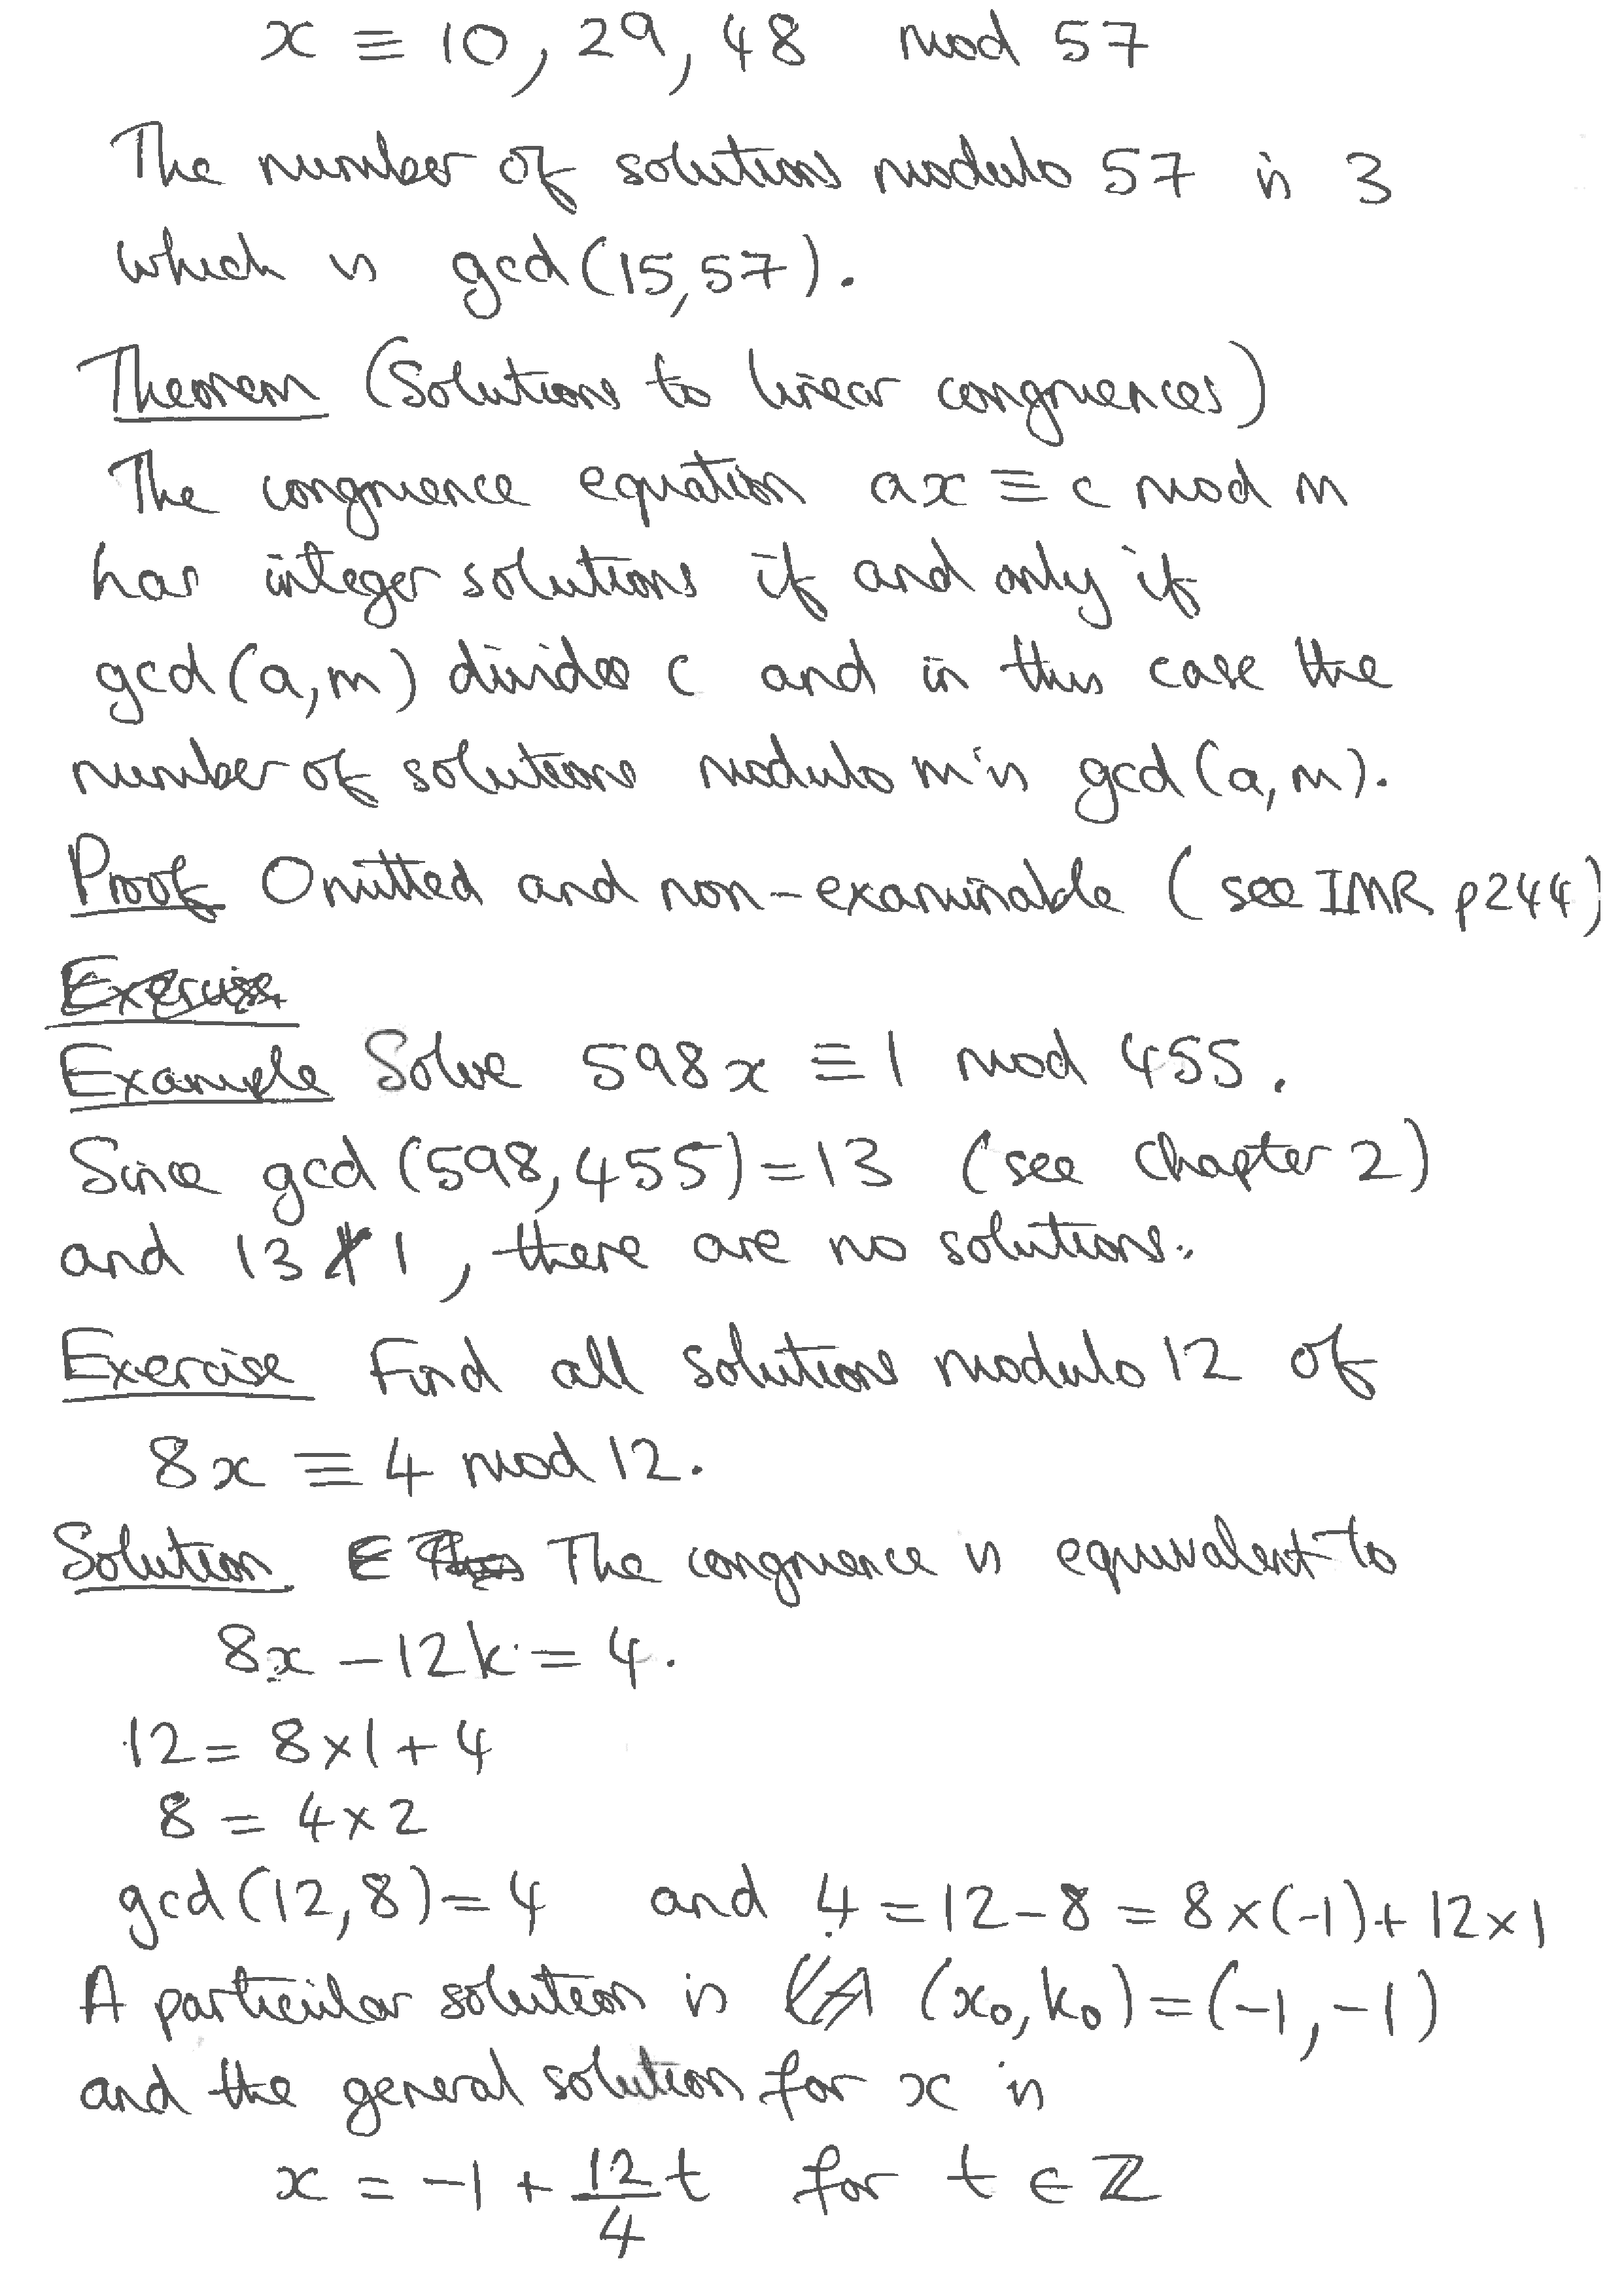 x ≡ 10, 29, 48 mod 57
The number of solutions modulo 57 is 3
which is gcd(15,57).
Theorem (Solutions to linear congruences)
The congruence equation ax ≡ c mod m
has integer solutions if and only if
gcd(a,m) divides c and in this case the
number of solutions modulo m is gcd(a,m).
Proof Omitted and non-examinable (see IMR p244)
Exercise
Example Solve 598x ≡ 1 mod 455.
Since gcd(598,455)=13 (see Chapter 2)
and 13 ∤ 1, there are no solutions.
Exercise Find all solutions modulo 12 of
8x ≡ 4 mod 12.
Solution The congruence is equivalent to
8x - 12k = 4.
12 = 8×1 + 4
8 = 4×2
gcd(12,8) = 4 and 4 = 12-8 = 8×(-1)+12×1
A particular solution is (x₀,k₀) = (-1,-1)
and the general solution for x is
x = -1 + 12/4 t for t ∈ ℤ